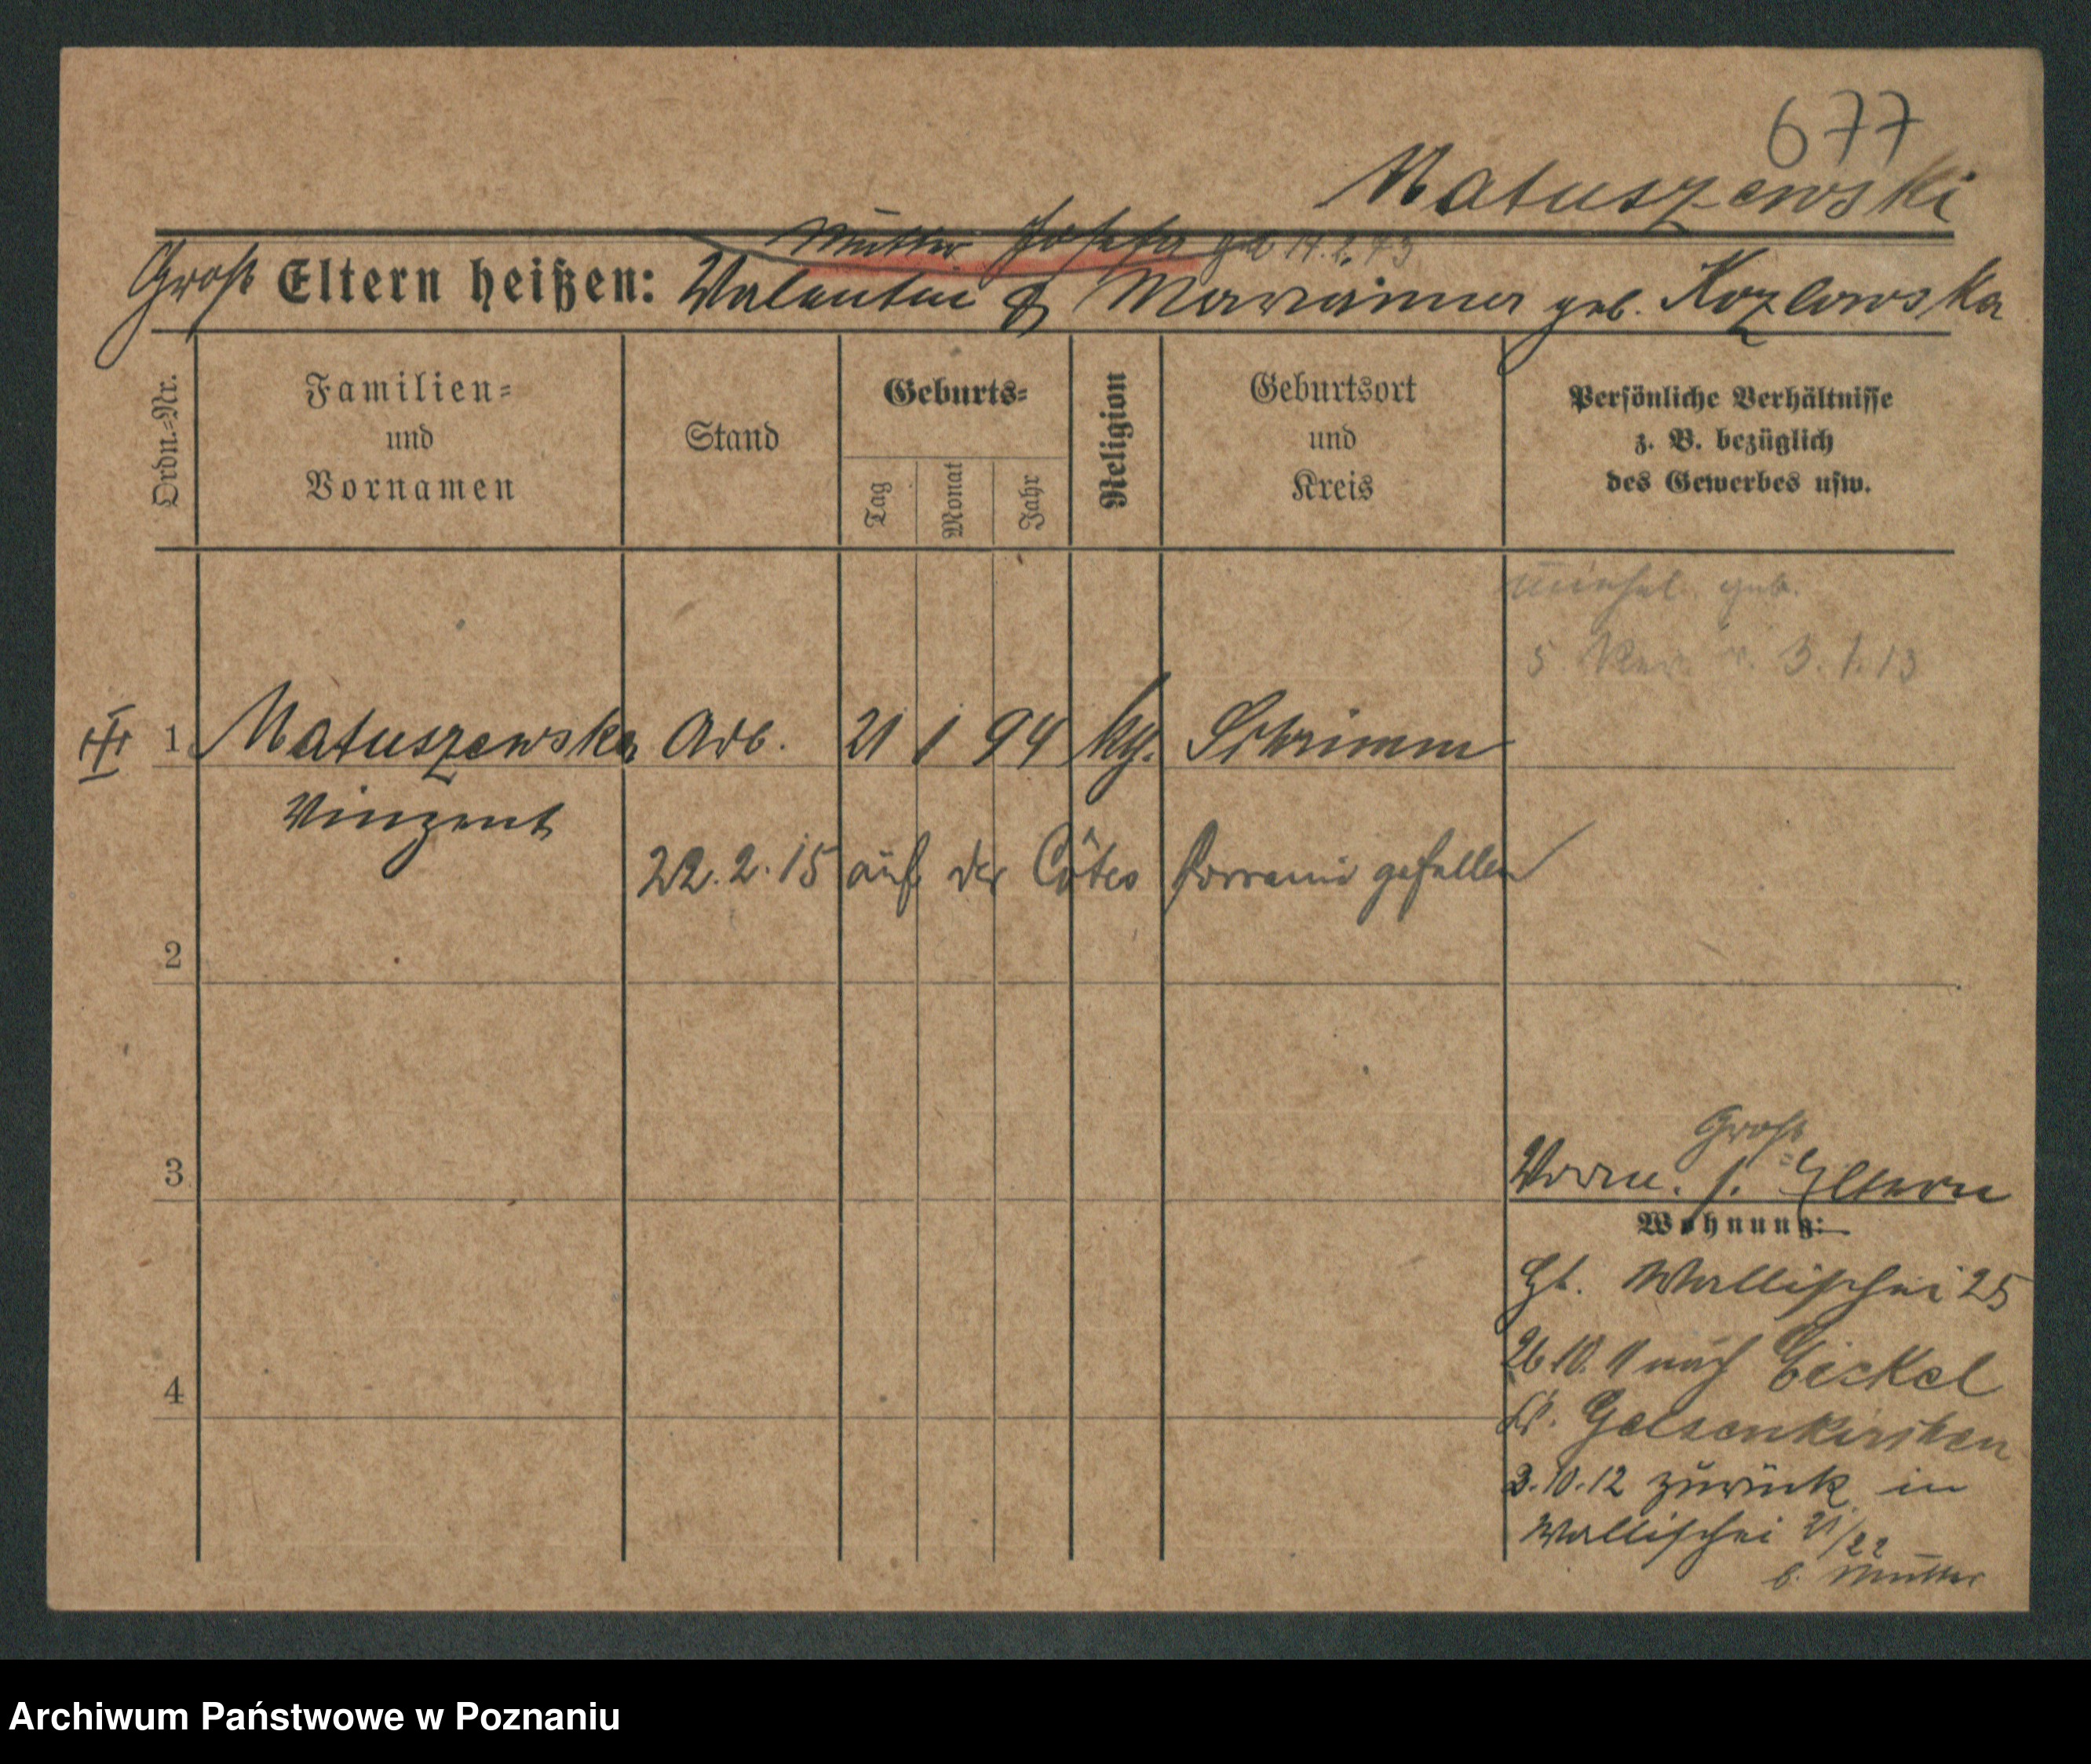 677
Matuszewski
Mutter Josefa geb 14.2.73
Groß Eltern heißen: Valentin & Marianna geb. Kozlowska
Ordn.-Nr.
Familien-
und
Vornamen
Stand
Geburts-
Tag
Monat
Jahr
Religion
Geburtsort
und
Kreis
Persönliche Verhältnisse
z. B. bezüglich
des Gewerbes usw.
unehel. geb.
5. 3.1.13
III 1 Matuszewski Arb. 21 1 94 kth. Schrimm
Vinzent
22.2.15 auf der Côtes Lorraine gefallen
2
3
4
Groß
Vorm. s. Eltern
Wohnung:
Zt. Wallischei 25
26.10.11 nach Eickel
Kr. Gelsenkirchen
3.10.12 zurück in
Wallischei 21/22
b. Mutter
Archiwum Państwowe w Poznaniu